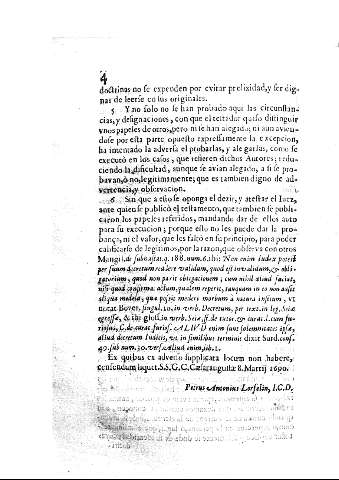 4
doctrinas no se expenden por evitar prolixidad, y ser dig-
nas de leerse en los originales.
5 Y no solo no se han probado aqui las circunstan-
cias, y designaciones, con que el testador quiso distinguir
unos papeles de otros, pero ni se han alegado; ni aun avien-
dose por esta parte opuesto expressamente la excepcion,
ha intentado la adversa el probarlas, y alegarlas, como se
executò en los casos, que refieren dichos Autores; redu-
ciendo la dificultad, aunque se avian alegado, a si se pro-
bavan, ò no legitimamente; que es tambien digno de ad-
vertencia, y observacion.
6 Sin que a esto se oponga el dezir, y atestar el Juez,
ante quien se publicò el testamento, que tambien se publi-
caron los papeles referidos, mandando dar de ellos auto
para su execucion; porque ello no les puede dar la pro-
bança, ni el valor, que les falta en su principio, para poder
calificarse de legitimos, por la razon, que observa con otros
Mangil. de subhastat. q. 188. num. 6. ibi: Non enim Iudex potest
per suum decretum reddere validum, quod est invalidum, & obli-
gatorium, quod non parit obligationem, cum nihil aliud faciat,
nisi quod confirma actum, qualem reperit, tanquam in eo non adsit
aliqua medela, qua possit mederi morbum à natura insitum, ut
notat Bover, singul. 10. in verb. Decretum, per text. in leg. Seiæ
egressæ, & ibi gloss. in verb. Seia, ff. de tutor. & curat. l. cum fu-
riosus, C. de curat. furios. ALIVD enim sunt solemnitates ipsæ,
aliud decretum Iudicis, ut in similibus terminis dixit Surd. cons.
40. sub num. 30. vers. Aliud enim, lib. 1.
Ex quibus ex adverso supplicata locum non habere,
censendum iaquet. S. S. G. C. Cæsaraugustæ 8. Martij 1690.
Petrus Antonius Lorfelin, I. C. D.